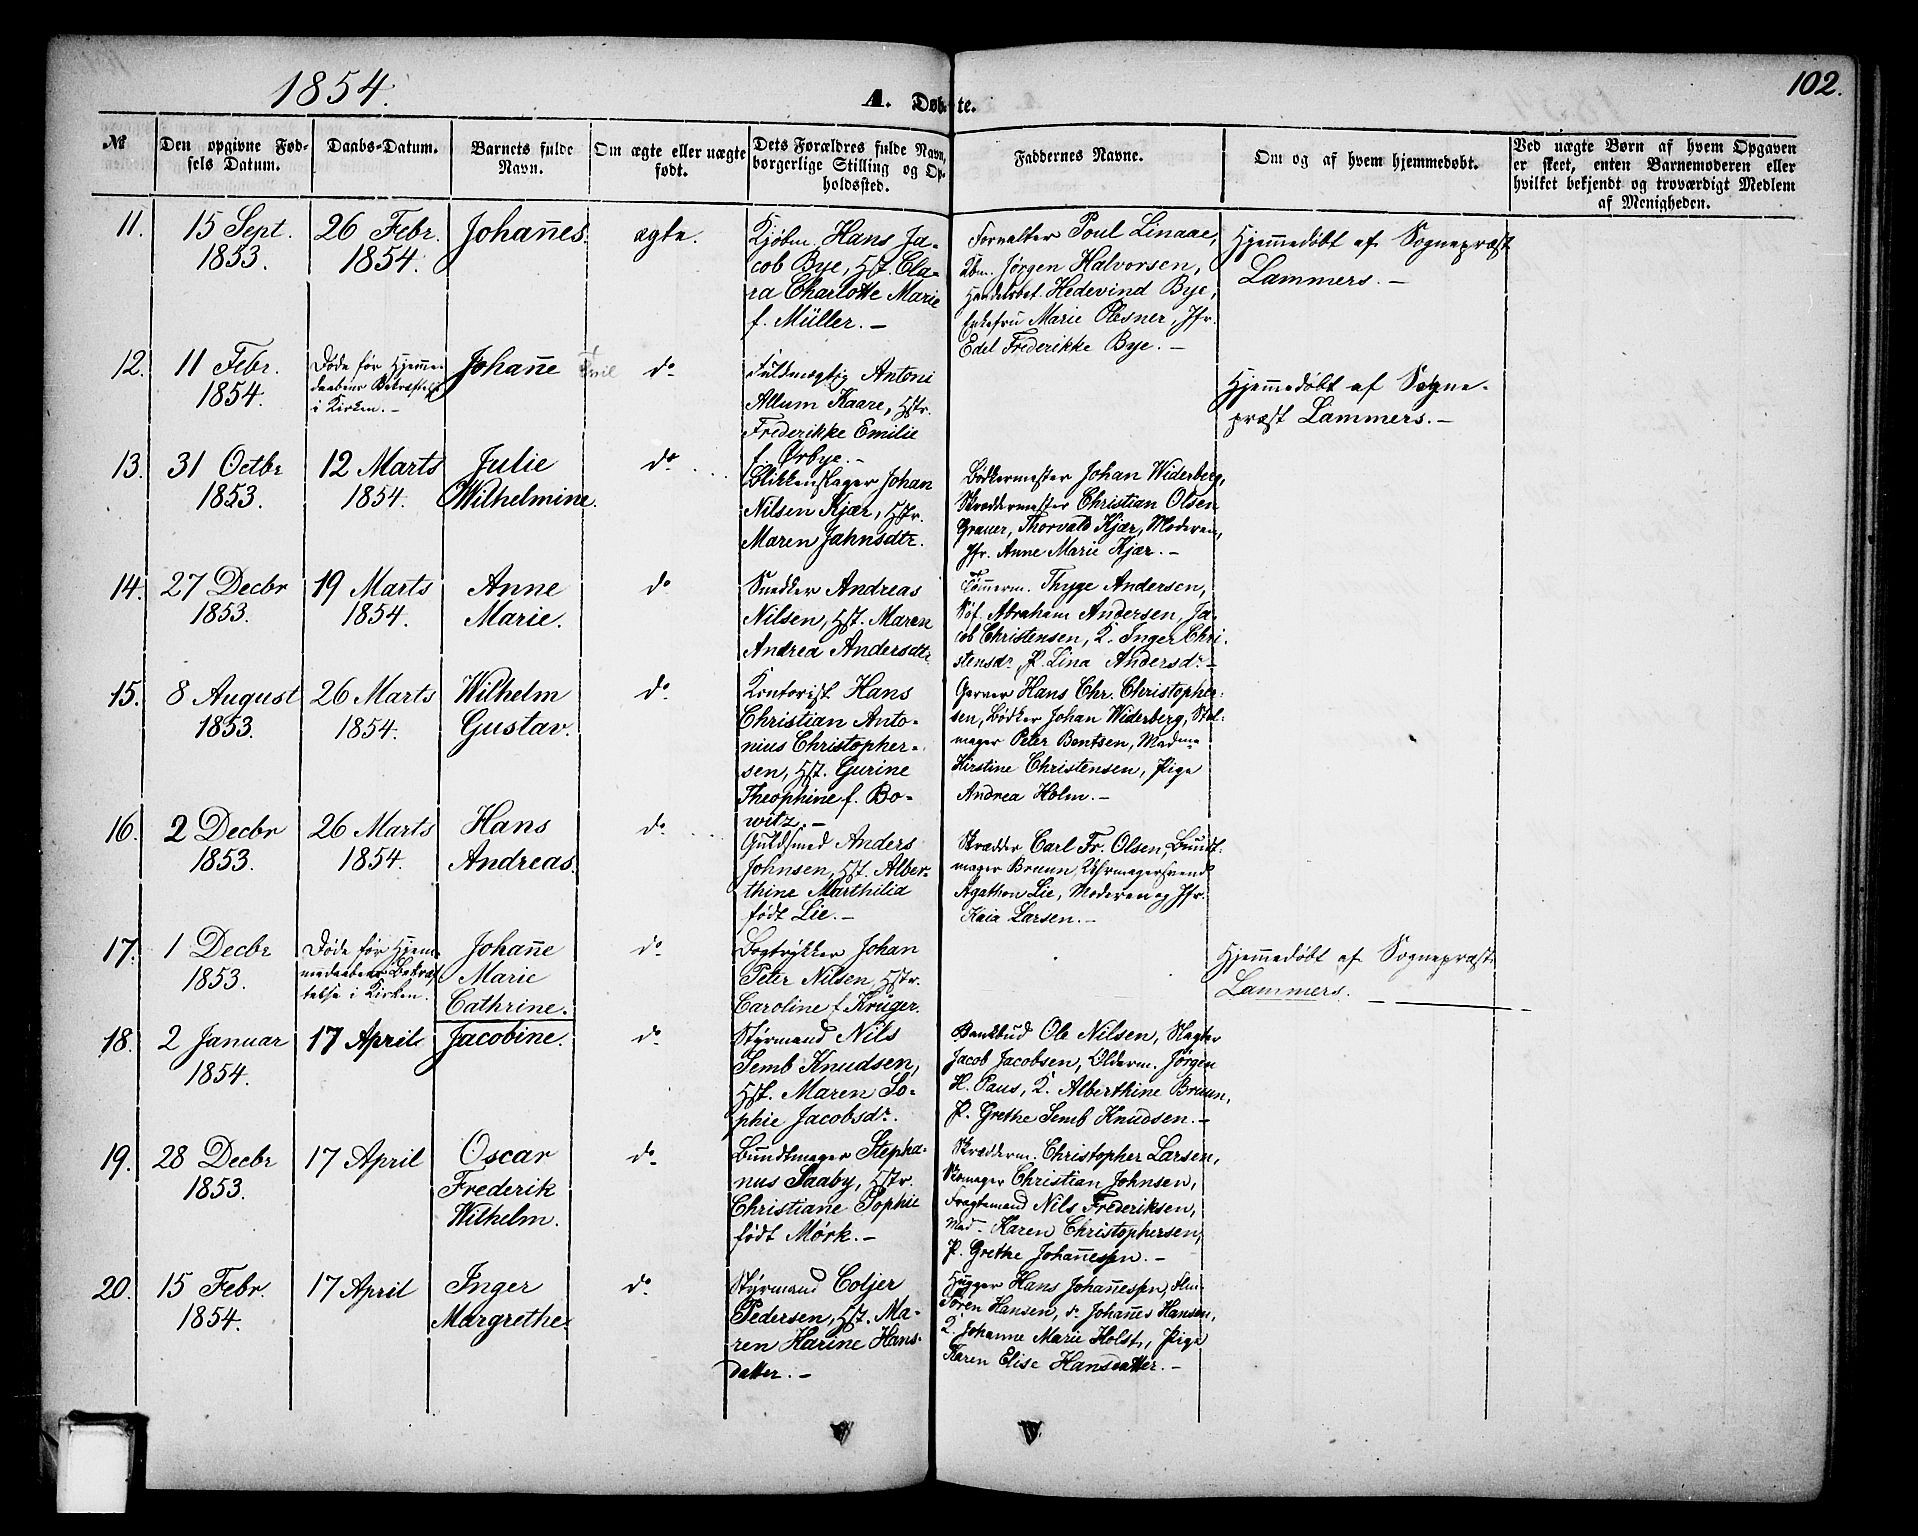 1854.
A. Døbte.
102.
No
Den opgivne Fød-
sels Datum.
Daabs-Datum.
Barnets fulde
Navn.
Om ægte eller uægte
født.
Dets Forældres fulde Navn,
borgerlige Stilling og Op-
holdssted.
Faddernes Navne.
Om og af hvem hjemmedøbt.
Ved uægte Børn af hvem Opgaven
er skeet, enten Barnemoderen eller
hvilket bekjendt og troværdigt Medlem
af Menigheden.
11.
15 Sept.
1853.
26 Febr.
1854.
Johan̄es.
ægte.
Kjøbm. Hans Ja-
cob Bye, Hst. Cla-
ra Charlotte Marie
f. Müller. -
Forvalter Poul Linaae,
Kbm. Jørgen Halvorsen,
Handelsbet. Hedevind Bye,
Enkefru Marie Plesner, Jfr.
Edel Frederikke Bye. -
Hjem̄edøbt af Sognepræst
Lammers. -
12.
11 Febr.
1854.
Døde før Hjem̄e-
daabens Bekræftelse
i Kirken. -
Johan̄e
do
Fuldmægtig Antoni
Allum Kaare, Hstr.
Frederikke Emilie
f. Ørbye. -
Hjem̄edøbt af Sogne-
præst Lammers. -
13.
31 Octbr
1853.
12 Marts
1854.
Julie
Wilhelmine.
do
Blikkenslager Johan
Nilsen Kjær, Hstr.
Maren Jahnsdtr.
Bødkermester Johan Widerberg,
Skræddermester Christian Olsen
Grauer, Thorvald Kjær, Moderen,
Jfr. Anne Marie Kjær. -
14.
27 Decbr
1853.
19 Marts
1854.
Anne
Marie.
do
Snedker Andreas
Nilsen, Hst. Maren
Andrea Andersdtr.
Tøm̄erm. Thyge Andersen,
Søf. Abraham Andersen, Ja-
cob Christensen, K. Inger Chri-
stensdr. P. Lina Andersdr. -
15.
8 August
1853.
26 Marts
1854.
Wilhelm
Gustav.
do
Kontorist Hans
Christian Anto-
nius Christopher-
sen, Hst. Gurine
Theophine f. Bo-
witz. -
Garver Hans Chr. Christopher-
sen, Bødker Johan Widerberg, Stol-
mager Peter Bentsen, Madme
Kirstine Christensen, Pige
Andrea Holm. -
16.
2 Decbr
1853.
26 Marts
1854.
Hans
Andreas.
do
Guldsmed Anders
Johnsen, Hst. Alber-
thine Marthilia
født Lie. -
Skrædder Carl Fr. Olsen, Bundt-
mager Bruun, Uhrmagersvend
Agathon Lie, Moderen og Jfr.
Kaia Larsen. -
17.
1 Decbr
1853.
Døde før Hjem-
medaabens Bekræf-
telse i Kirken.
Johan̄e
Marie
Cathrine.
do
Bogtrykker Johan
Peter Nilsen, Hstr.
Caroline f. Krüger.
Hjem̄edøbt af Sognepræst
Lammers. -
18.
2 Januar
1854.
17 April
Jacobine.
do
Styrmand Nils
Semb Knudsen,
Hst. Maren So-
phie Jacobsdr.
Bankbud Ole Nilsen, Slagter
Jacob Jacobsen, Olderm. Jørgen
H. Paus, K. Alberthine Bruun,
P. Grethe Semb Knudsen. -
19.
28 Decbr
1853.
17 April
Oscar
Frederik
Wilhelm.
do
Bundtmager Stepha-
nus Saaby, Hstr.
Christiane Sophie
født Mørk. -
Skrædderm. Christopher Larsen,
Skomager Christian Johnsen,
Fragtemand Nils Frederiksen,
Mad. Karen Christophersen,
P. Grethe Johan̄essen. -
20.
15 Febr.
1854.
17 April
Inger
Margrethe.
do
Styrmand Coljer
Pedersen, Hst. Ma-
ren Karine Hans-
datter. -
Hugger Hans Johan̄essen,
Søren Hansen, do Johan̄es Hansen,
K. Johanne Marie Holst, Pige
Karen Elise Hansdatter. -